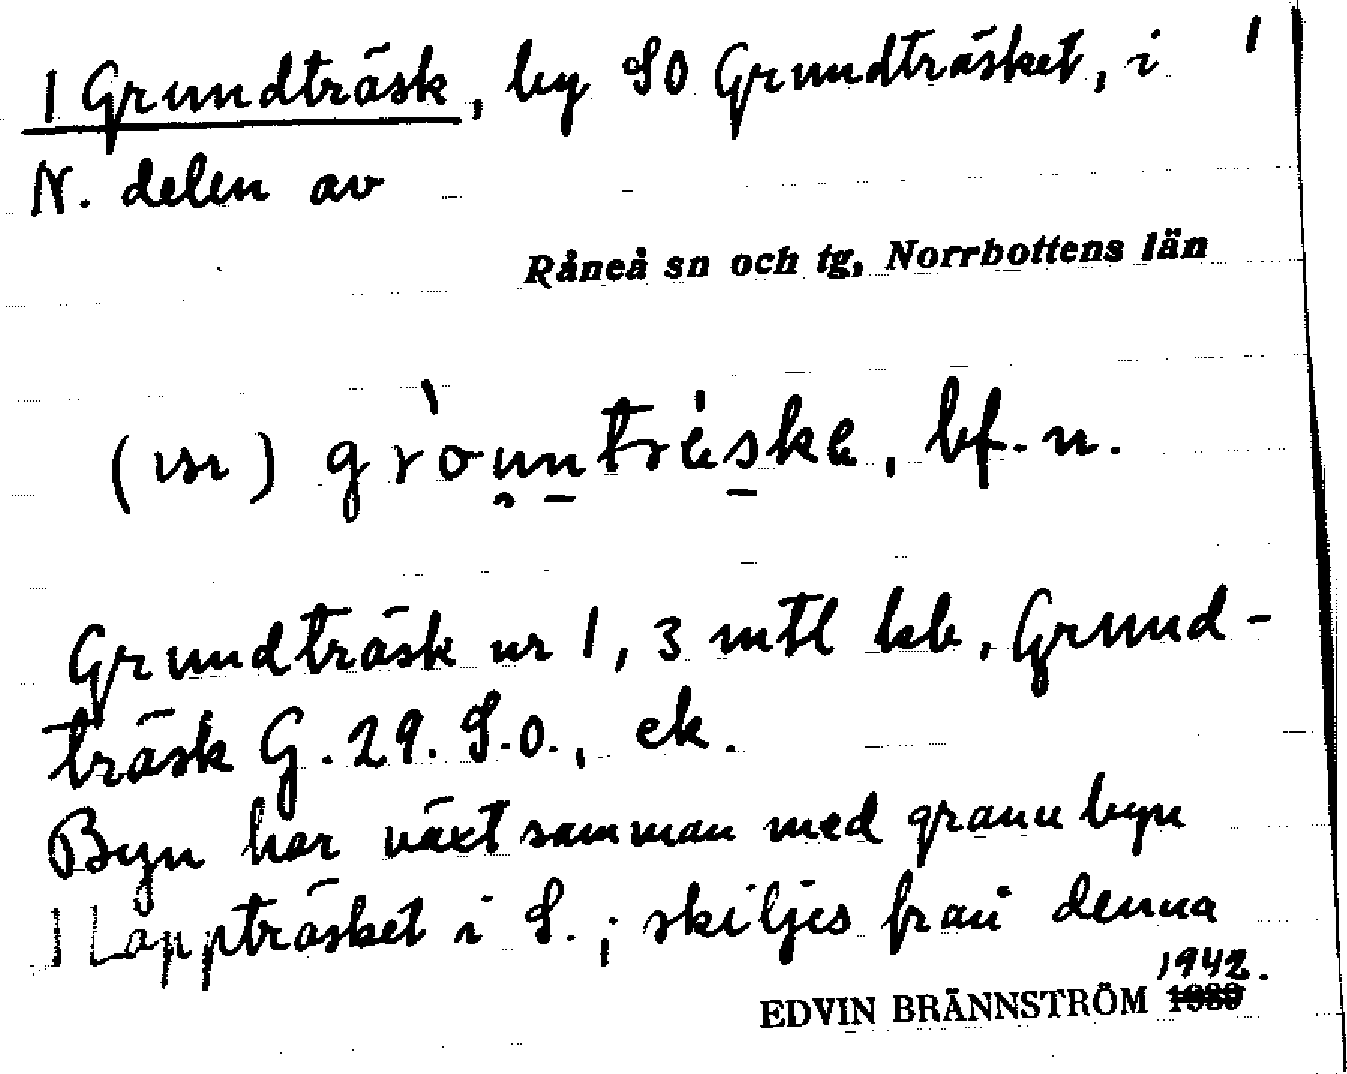 1 Grundträsk, by SO Grundträsket, i 1
N. delen av
Råneå sn och tg, Norrbottens län
bf. n.
Grundträsk nr 1, 3 mtl kb, Grund-
träsk G. 29. S.o., ek.
Byn har växt samman med grannbyn
1 Lappträsket i S.; skiljes från denna
EDVIN BRÄNNSTRÖM 1942.